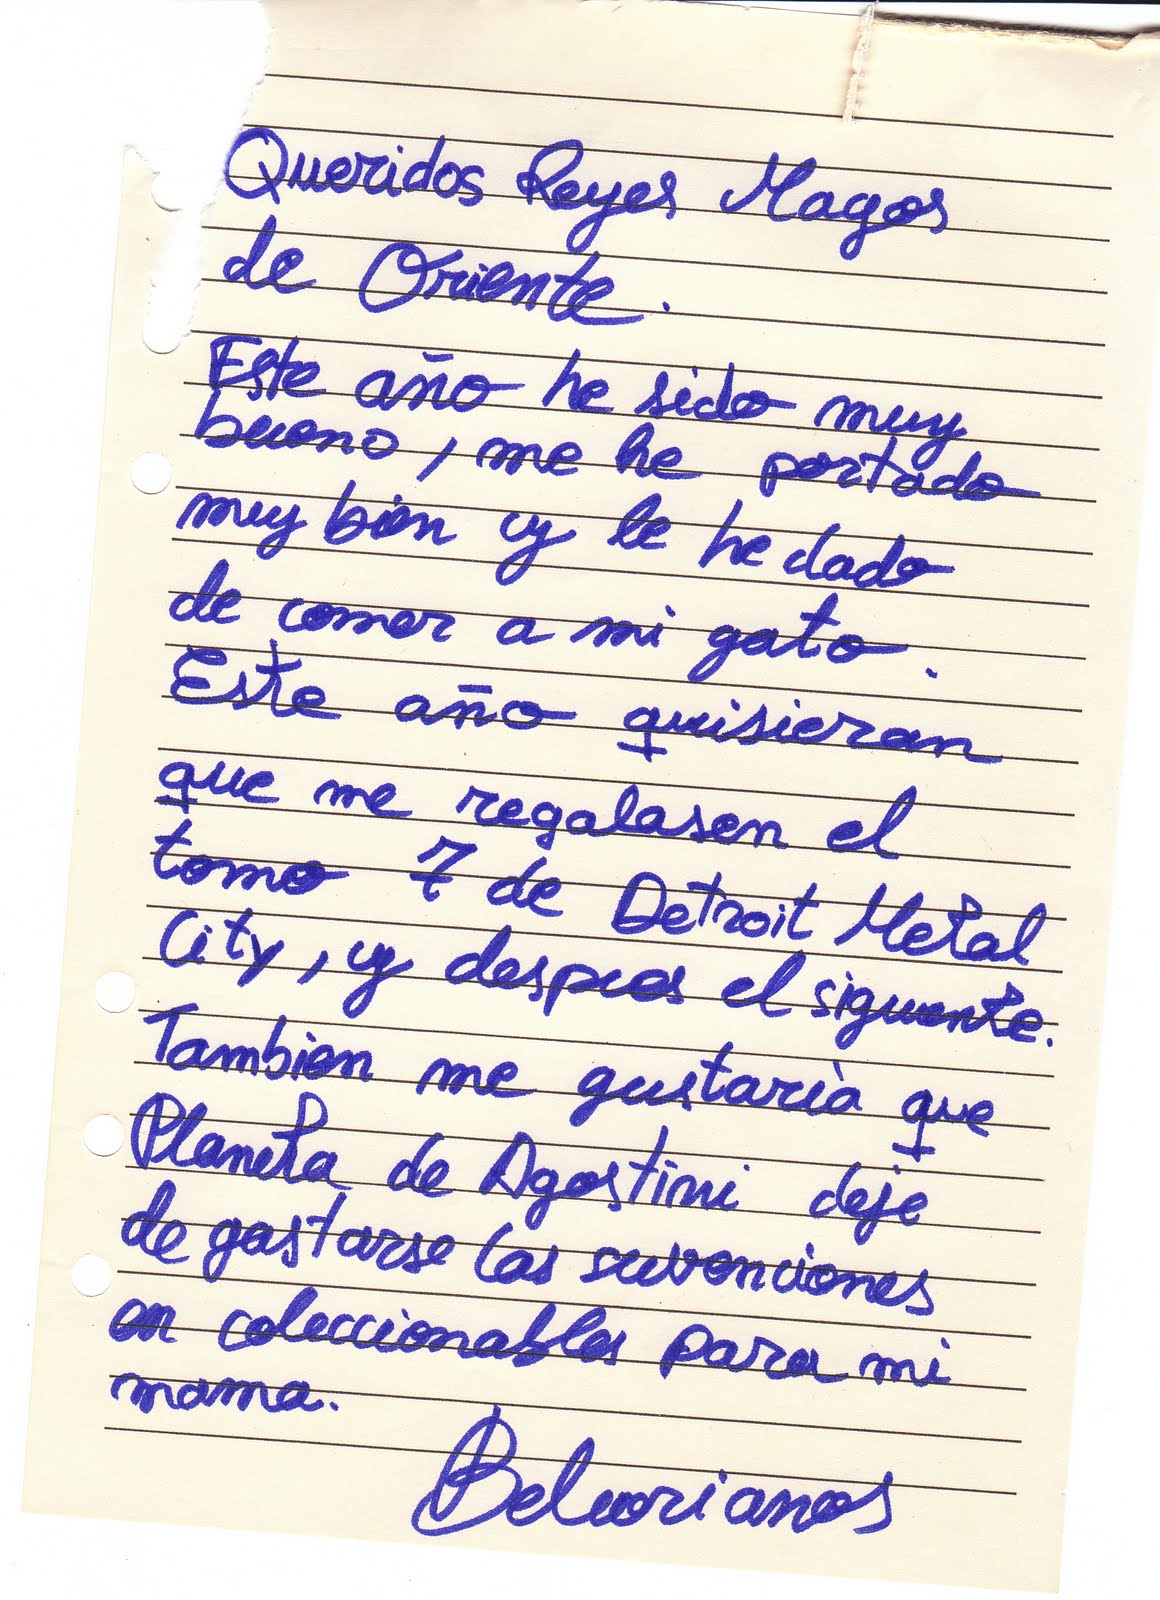 Queridos Reyes Magos
de Oriente.
Este año he sido muy
bueno, me he portado
muy bien y le he dado
de comer a mi gato.
Este año quisieran
que me regalasen el
tomo 7 de Detroit Metal
City, y despues el siguente.
Tambien me gustaría que
Planeta de Agostini deje
de gastarse las subenciones
en coleccionables para mi
mama.